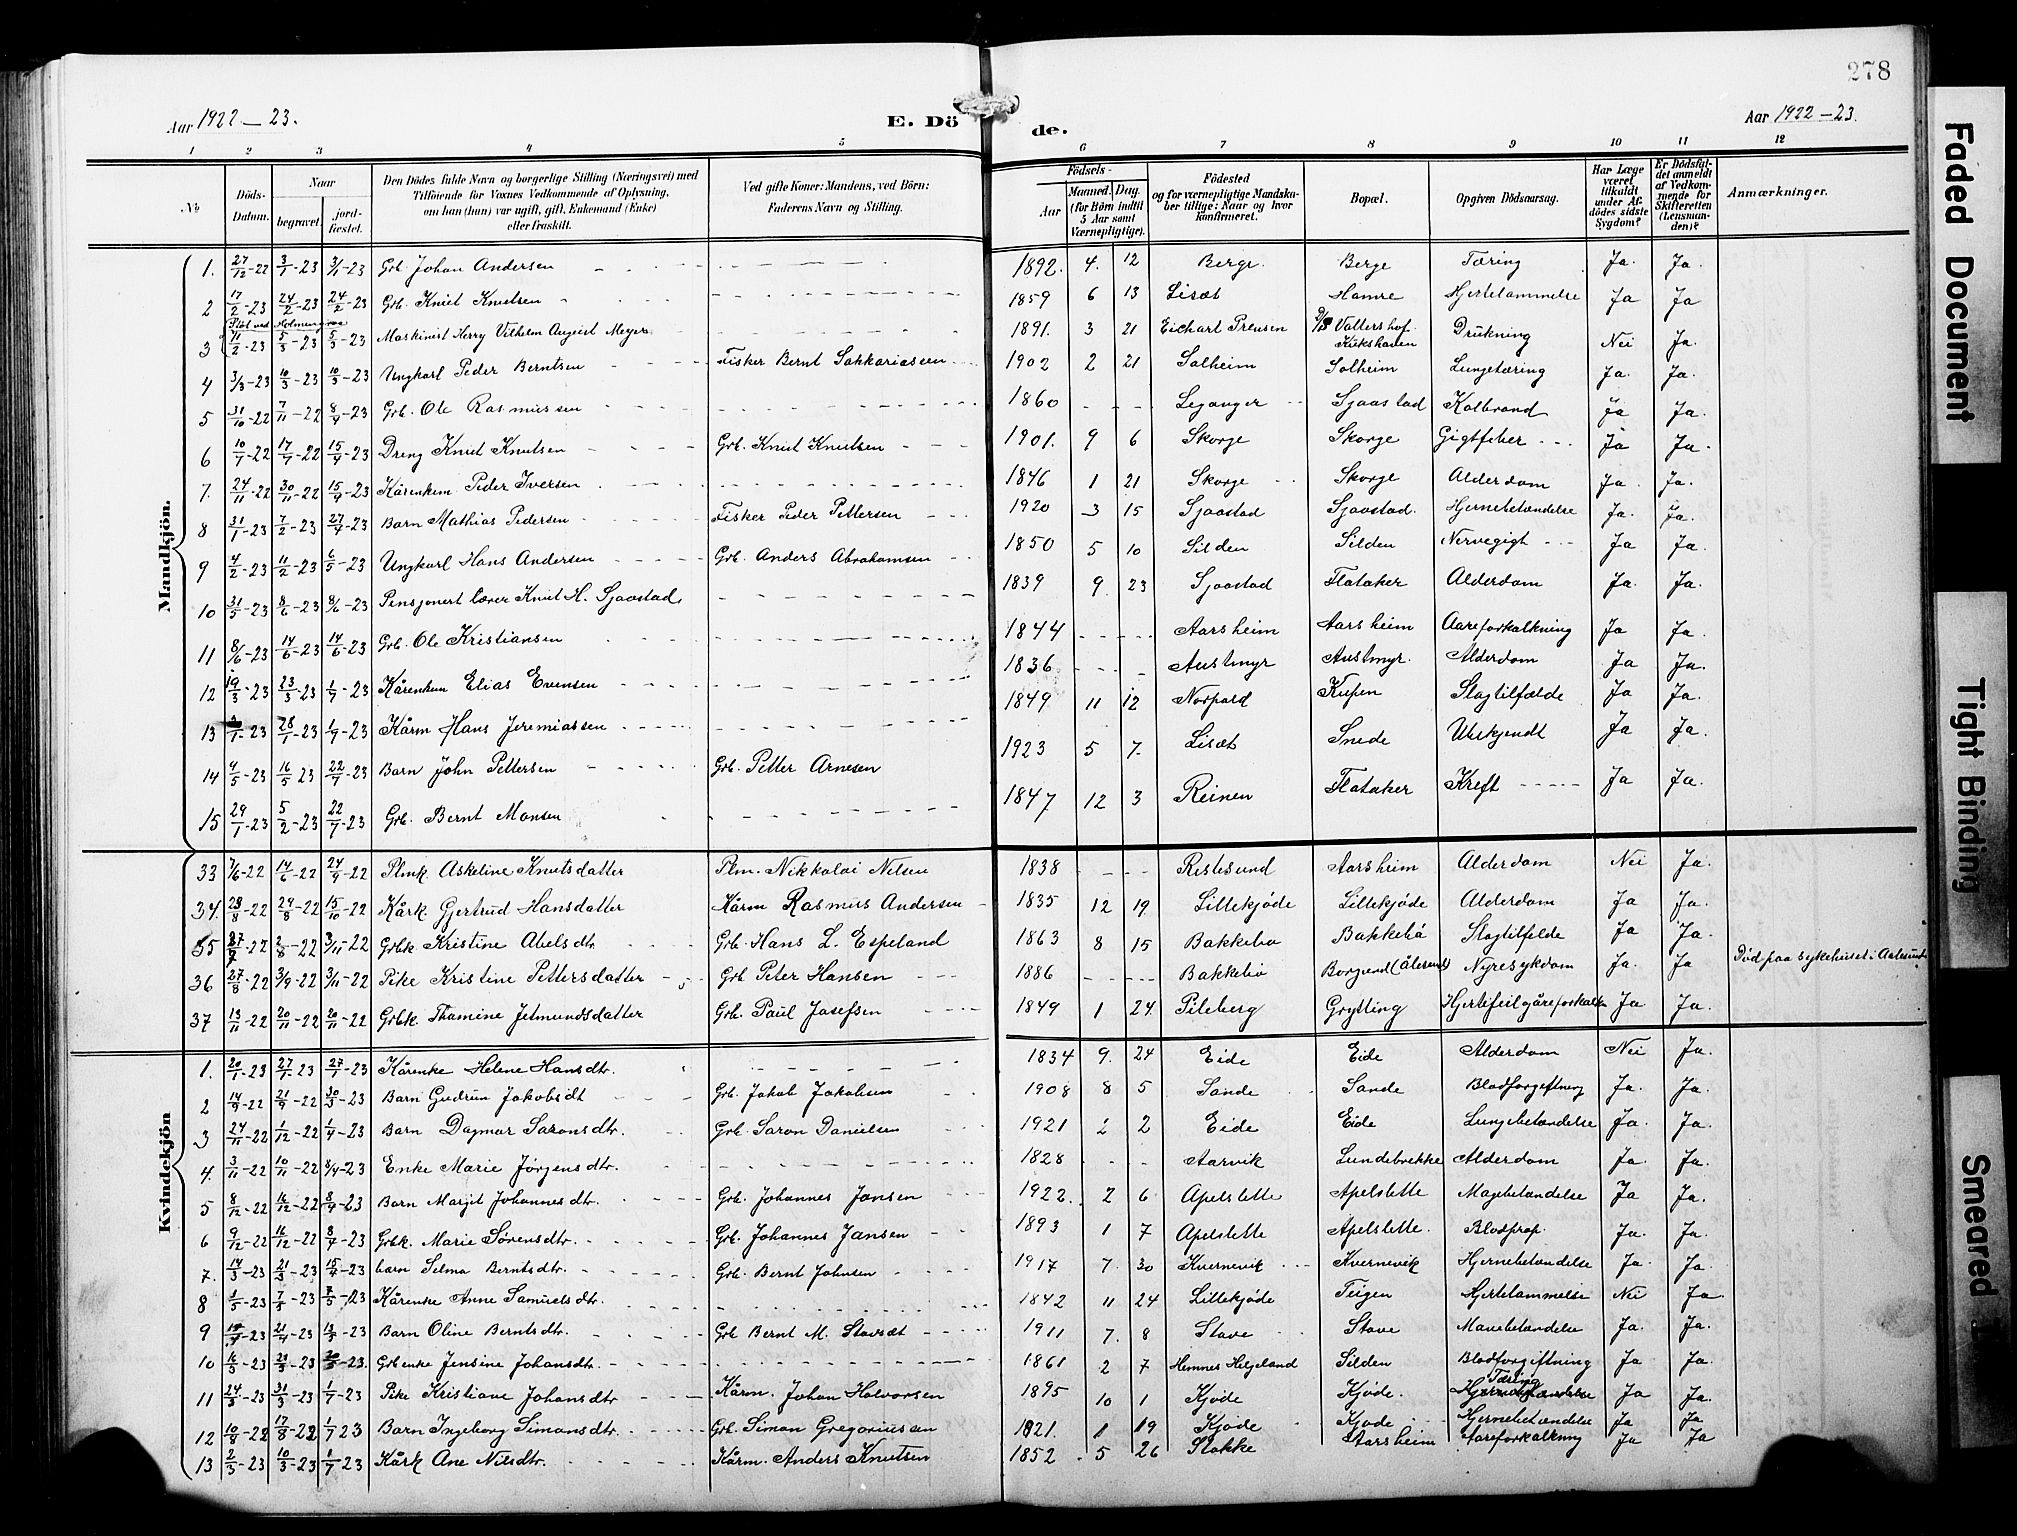 278
Aar 1922-23.
E. Döde.
Aar 1922-23.
1 2 3 4 5 6 7 8 9 10 11 12
№ Döds-Datum. Naar begravet jordfæstet. Den Dödes fulde Navn og borgerlige Stilling (Næringsvei) med Tilföiende for Voxnes Vedkommende af Oplysning, om han (hun) var ugift, gift, Enkemand (Enke) eller fraskilt. Ved gifte Koner: Mandens, ved Börn: Faderens Navn og Stilling. Födsels- Aar Maaned. Dag. (for Börn indtil 5 Aar samt Værnepligtige). Födested og for værnepligtige Mandskaber tillige: Naar og hvor konfirmeret. Bopæl. Opgiven Dödsaarsag. Har Læge været tilkaldt under Afdödes sidste Sygdom? Er Dödsfaldet anmeldt af Vedkommende for Skifteretten (Lensmanden)? Anmærkninger.
Mandkjön.
1. 27/12-22 3/1-23 3/1-23 Grb. Johan Andersen 1892. 4. 12 Berge Berge Tæring Ja. Ja.
2 17/2-23 24/2-23 24/2-23 Grb. Knut Knutsen 1859 6 13 Lisæt Hamre Hjertelammelse Ja Ja
3 11/2-23 5/3-23 5/3-23 Maskinist Herry Vilhelm August Meyer 1891. 3 21 Valtershof Kukshaven Drukning Nei Ja.
4 3/3-23 10/3-23 10/3-23 Ungkarl Peder Berntsen Fisker Bernt Sakkariassen 1902 2 21 Solheim Solheim Lungetæring Ja. Ja.
5 31/10-22 7/11-22 8/4-23 Grb. Ole Rasmussen 1860 Leganger Sjaastad Kolbrand Ja Ja.
6 10/7-22 17/7-22 15/4-23 Dreng Knut Knutsen Grb. Knut Knutsen 1901. 9 6 Skorge Skorge Gigtfeber Ja Ja.
7. 24/11-22 30/11-22 15/4-23 Kårenkem Peder Iversen 1846 1 21 Skorge Skorge Alderdom Ja. Ja.
8 31/1-23 7/2-23 27/4-23 Barn Mathias Pedersen Fisker Peder Pettersen 1920 3 15 Sjaastad Sjaastad. Hjernebetændelse Ja. Ja.
9 4/2-23 11/2-23 6/5-23 Ungkarl Hans Andersen Grb. Anders Abrahamsen 1850 5 10 Silden Silden Nervegigt Ja Ja.
10 31/5-23 8/6-23 8/6-23 Pensjonert lærer Knut H. Sjaastad 1839 9 23 Sjaastad Flataker Alderdom Ja. Ja.
11 8/6-23 14/6-23 14/6-23 Grb. Ole Kristiansen 1844 Aarsheim Aarsheim Aareforkalkning Ja Ja.
12 19/3-23 23/3-23 1/7-23 Kårenkem Elias Evensen 1836 Austmyr Austmyr. Alderdom Ja Ja.
13 /1-23 28/1-23 1/7-23 Kårm Hans Jeremiassen 1849 11 12 Norpold Kupen Slagtilfælde Ja Ja.
14 4/5-23 16/5 23 22/7-23 Barn John Pettersen Grb. Petter Arnesen 1923 5 7. Lisæt Snede Ubekjendt Ja Ja.
15 29/1-23 5/2-23 22/7-23 Grb. Bernt Monsen 1847 12 3 Reinen Flataker Kreft Ja Ja.
33 7/6-22 14/6-22 24/9-22 Plmk. Askeline Knutsdatter Plm. Nikkolai Nilsen 1838 Ristesund Aarsheim Alderdom Nei Ja.
34. 28/8-22 24/8-22 15/10-22 Kårk. Gjertrud Hansdatter Kårm Rasmus Andersen 1835 12 19 Lillekjøde Lillekjøde Alderdom Ja Ja.
35 27/7-22 2/8-22 3/11-22 Grbk Kristine Abelsdtr. Grb. Hans L. Espeland 1863 8 15 Bakkebø Bakkebø Slagtilfelde Ja Ja.
36 27/8-22 3/9-22 3/11-22 Pike Kristine Pettersdatter Grb Peter Hansen 1886 Bakkebø Borgund (Ålesund) Nyresykdom Ja. Ja Død paa sykehuset i Aalesund
37 13/11-22 20/11-22 20/11-22 Grbk. Thomine Jetmundsdatter Grb. Paul Josefsen 1849 1 24. Pileberg Grytting Hjertefeil, åreforkalkn Ja Ja.
Kvindekjön
1. 20/1-23 27/1-23 27/1-23 Kårenke Helene Hansdtr. 1834 9. 24 Eide Eide Alderdom Nei Ja.
2 14/9-22 21/9-22 30/3-23 Barn Gudrun Jakobsdt Grb. Jakob Jakobsen 1908 8 5 Sande Sande Blodforgiftning Ja. Ja.
3 24/11-22 1/12-22 1/4-23 Barn Dagmar Saronsdtr. Grb. Saron Danielsen 1921 2 2 Eide Eide Lungebetændelse Ja. Ja.
4. 3/11-22 10/11-22 8/4-23 Enke Marie Jørgensdtr. 1828 Aarvik Lundebrekke Alderdom Ja. Ja.
5 8/12-22 16/12-22 8/4-23 Barn Margit Johannesdtr. Grb. Johannes Jansen 1922. 2 6 Apelslette Apelslette Magebetændelse Ja Ja.
6 9/12-22 16/12-22 8/7-23 Grbk. Marie Sørensdtr. Grb. Johannes Jansen 1893 1 7 Apelslette Apelslette. Blodprop. Ja. Ja.
7. 14/3-23 21/3-23 15/4-23 barn Selma Berntsdtr. Grb. Bernt Johnsen 1917 7. 30 Kvernevik Kvernevik Hjernebetændelse Ja. Ja.
8 1/5-23 7/5-23 7/5-23 Kårenke Anne Samuelsdtr. 1842 11 24 Lillekjøde Teigen Hjertelammelse Nei Ja.
9 /4-23 21/4-23 13/5-23 Barn Oline Berntsdtr. Grb Bernt M. Stavsæt 1911 7. 8 Stave Stave Mavebetændelse Ja. Ja.
10 16/3-23 24/3-23 20/5-23. Grbenke Jensine Johansdtr. 1861 2 7 Hemnes Helgeland Silden Blodforgiftning Ja Ja.
11 24/3-23 31/3-23 1/7-23 Pike Kristiane Johansdtr Kårm. Johan Halvorsen 1895 10 1 Kjøde Kjøde. Tæring Ja Ja.
12 10/8-22 17/8-22 1/7 23 Barn Ingeborg Simonsdtr. Grb. Simon Gregoriussen 1921. 1 19 Kjøde Kjøde Hjernebetændelse Ja Ja
13 2/3-23 10/3-23 1/7-23 Kårk Ane Nilsdtr. Kårm. Anders Knutsen 1852 5 26 Stokke Aarsheim Aareforkalkning Ja Ja
Faded Document
Tight Binding
Smeared